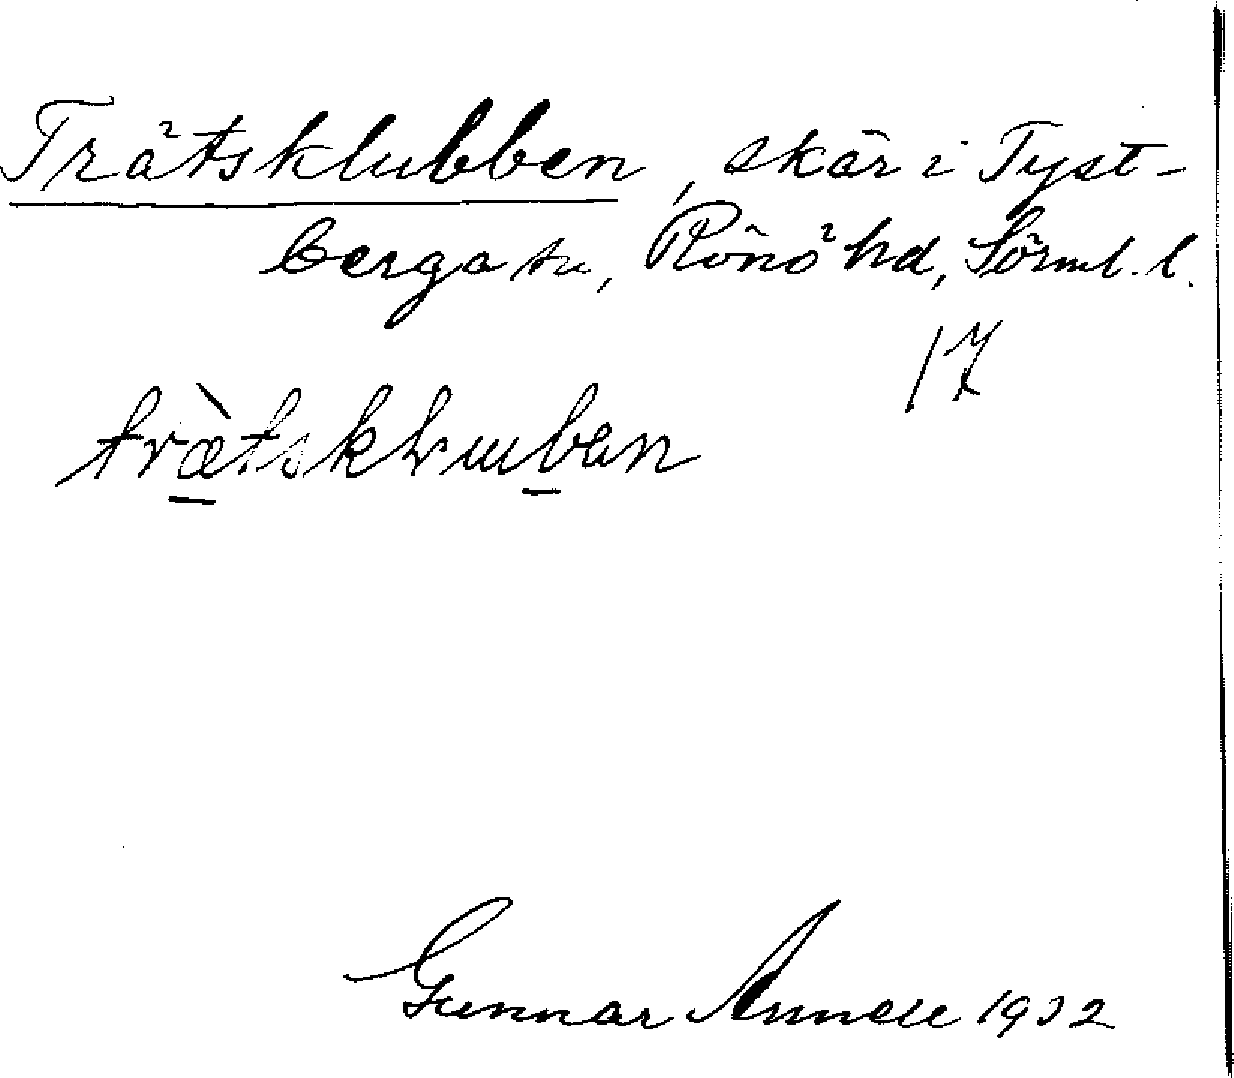 Trätsklubben, skär i Tyst-
berga sn, Rönö hd, Sörml. l.
17
trætsklubən
Gunnar Annell 1932